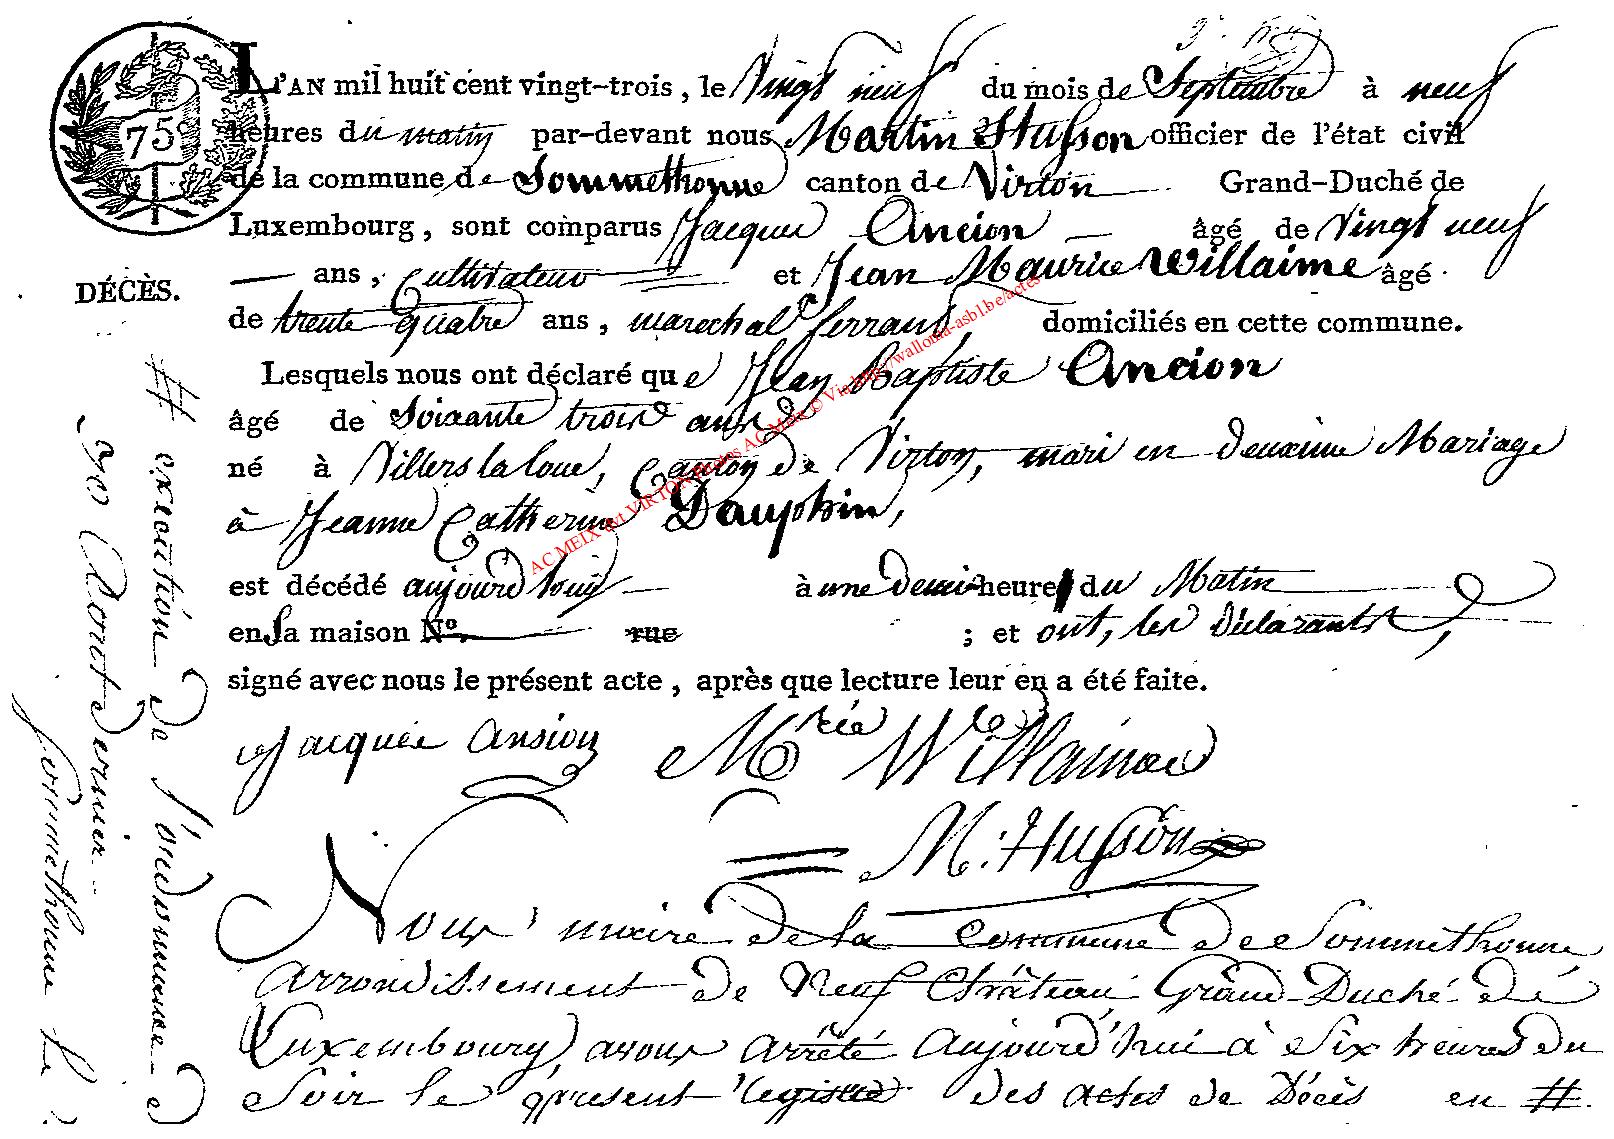 75c
L'AN mil huit cent vingt-trois, le Vingt neuf du mois de Septembre à neuf
heures du matin par-devant nous Martin Husson officier de l'état civil
de la commune de Sommethonne canton de Virton Grand-Duché de
Luxembourg, sont comparus Jacques Ancion âgé de Vingt neuf
ans, Cultivateur et Jean Maurice Willaime âgé
DÉCÈS.
de trente quatre ans, marechal ferrant domiciliés en cette commune.
Lesquels nous ont déclaré que Jean Baptiste Ancion
âgé de Soixante trois ans
né à Villers la loue, Canton de Virton, mari en deuxime Mariage
à Jeanne Catherine Dauphin,
est décédé aujourd huy à une demi heure du Matin
en sa maison N°. rue ; et ont, les Déclarants,
signé avec nous le présent acte, après que lecture leur en a été faite.
Jacques Ansion Mrice Willaime
M. Husson
Nous maire de la Commune de Sommethonne,
Arrondissement de Neuf Château, Grand-Duché de
Luxembourg, avons arrêté Aujourd'hui à Six heures du
Soir le present registre des actes de Décès en #.
# execution de l'ordonnance d
dernier.
Sommethonne le
AC MEIX dvt VIRTON Etudes AC MEIX © Via http://wallonia-asbl.be/actes